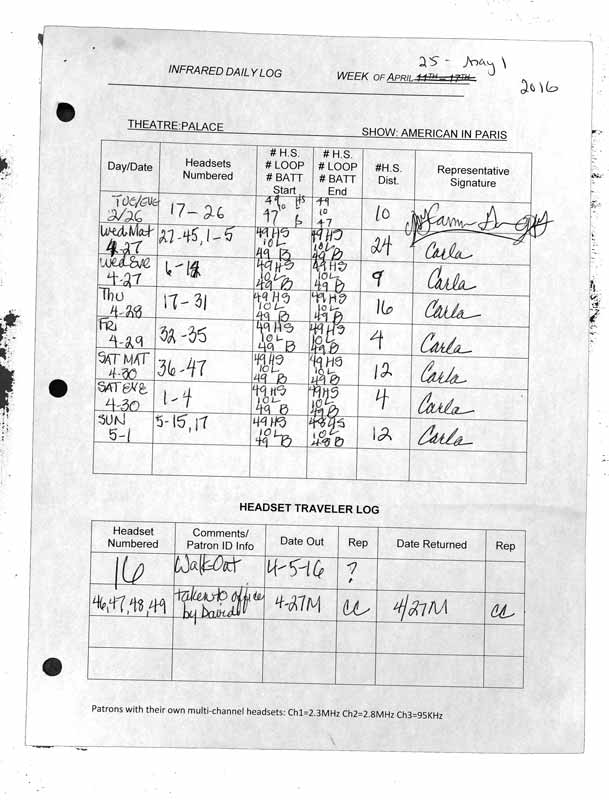 25 - May 1
INFRARED DAILY LOG WEEK OF APRIL 11TH – 17TH
2016
THEATRE: PALACE
SHOW: AMERICAN IN PARIS
Day/Date Headsets Numbered # H.S. # LOOP # BATT Start # H.S. # LOOP # BATT End #H.S. Dist. Representative Signature
TUE/EVE 2/26 17 - 26 49 HS 10 47 B 49 10 47 10
Wed Mat 4-27 27-45, 1-5 49HS 10L 49 B 49HS 10L 49 B 24 Carla
Wed Eve 4-27 6-14 49HS 10L 49 B 49HS 10L 49 B 9 Carla
Thu 4-28 17-31 49HS 10L 49 B 49HS 10L 49 B 16 Carla
FRI 4-29 32-35 49HS 10L 49 B 49HS 10L 49 B 4 Carla
SAT MAT 4-30 36-47 49HS 10L 49 B 49HS 10L 49 B 12 Carla
SAT EVE 4-30 1-4 49HS 10L 49 B 49HS 10L 49B 4 Carla
SUN 5-1 5-15, 17 49HS 10L 49 B 48HS 10L 48B 12 Carla
HEADSET TRAVELER LOG
Headset Numbered Comments/ Patron ID Info Date Out Rep Date Returned Rep
16 Walk-Out 4-5-16 ?
46,47,48,49 taken to office by David 4-27M cc 4/27M cc
Patrons with their own multi-channel headsets: Ch1=2.3MHz Ch2=2.8MHz Ch3=95KHz